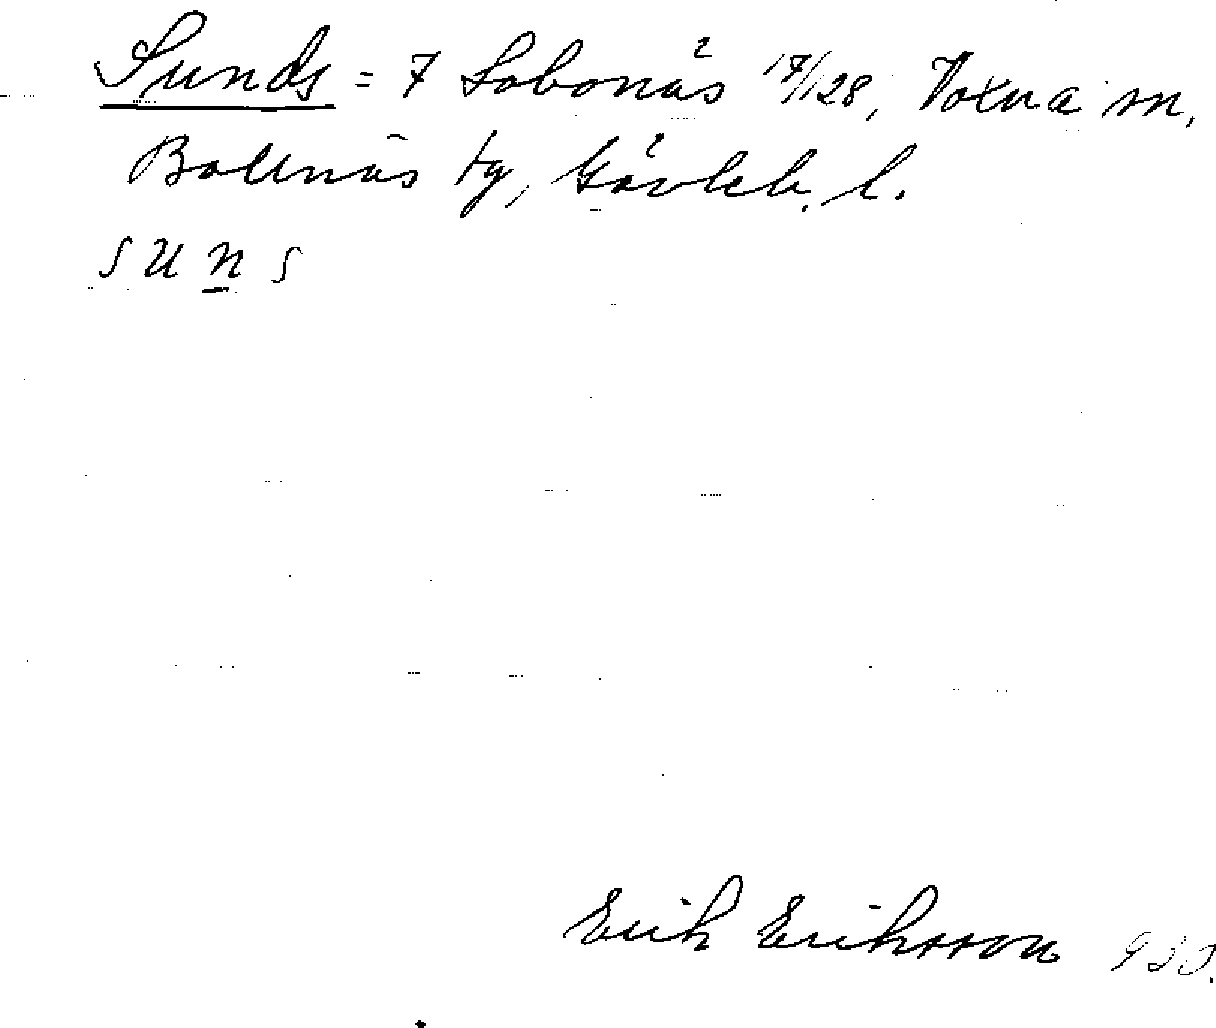 Sunds = 7 Lobonäs 17/128, Voxna sn,
Bollnäs tg, Gävleb. l.
suns
Erik Eriksson 930.